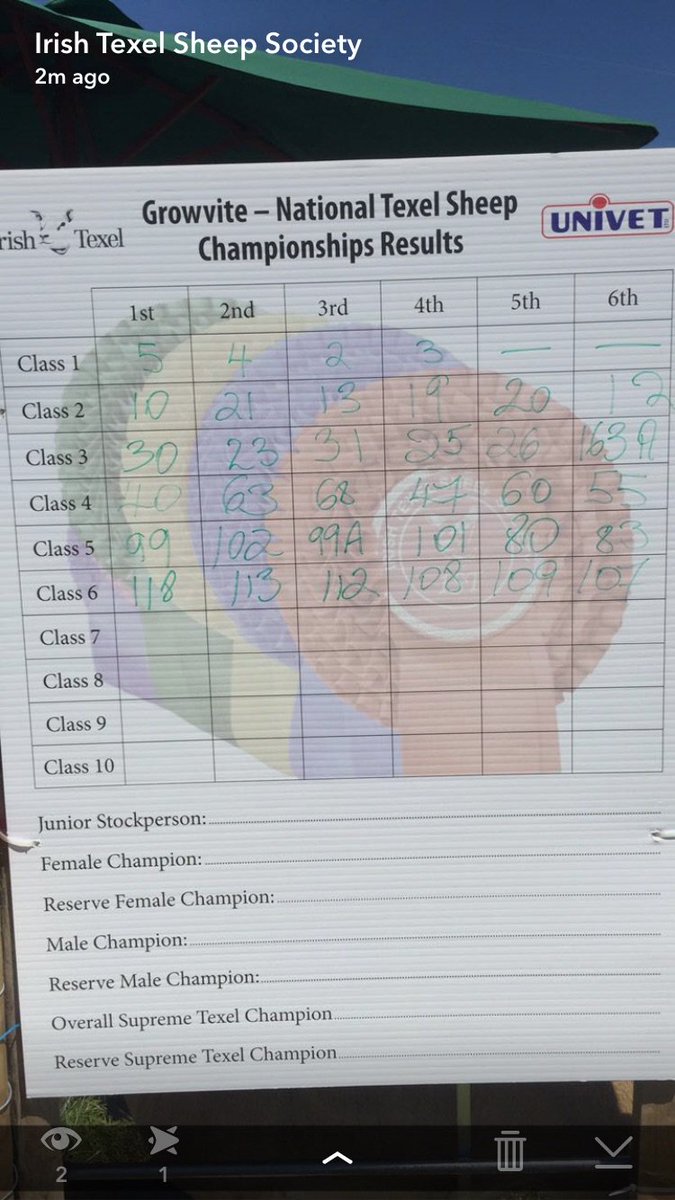 Irish Texel Sheep Society
2m ago
rish Texel
Growvite – National Texel Sheep
Championships Results
UNIVET
1st 2nd 3rd 4th 5th 6th
Class 1 5 4 2 3 — —
Class 2 10 21 13 19 20 12
Class 3 30 23 31 25 26 163A
Class 4 40 63 68 47 60 55
Class 5 99 102 99A 101 80 83
Class 6 118 113 112 108 109 107
Class 7
Class 8
Class 9
Class 10
Junior Stockperson:
Female Champion:
Reserve Female Champion:
Male Champion:
Reserve Male Champion:
Overall Supreme Texel Champion
Reserve Supreme Texel Champion
2 1